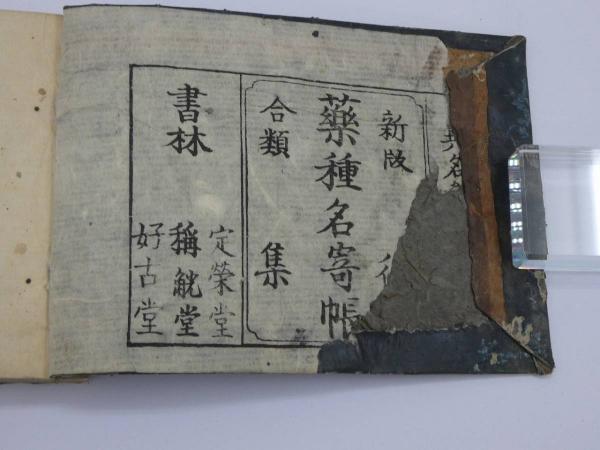 名
新版
藥種名寄帳
合類 集
書林
定榮堂
稱觥堂
好古堂